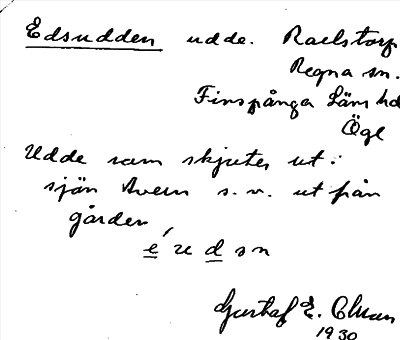 Edsudden udde. Raelstorp
Regna sn.
Finspånga läns hd
Ögl
Udde som skjuter ut i
sjön Avern s.v. ut från
gården
e u d s n
Gustaf E. Olman
1930